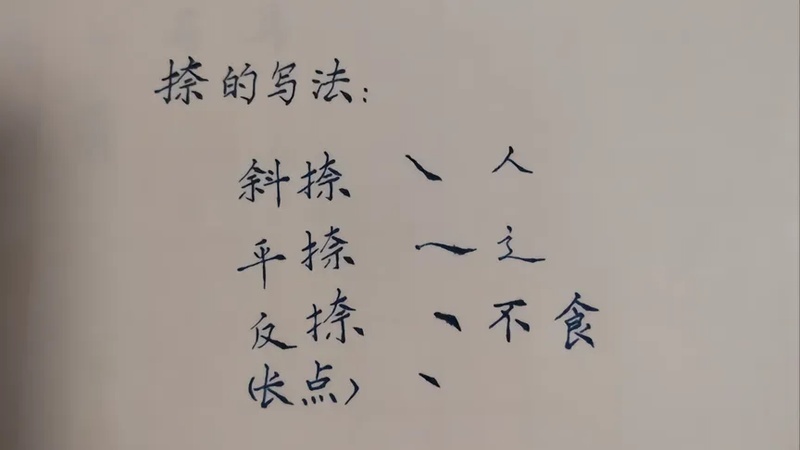 捺的写法：
斜捺 ㇏ 人
平捺 ㇏ 之
反捺 ㇔ 不 食
（长点） ㇔